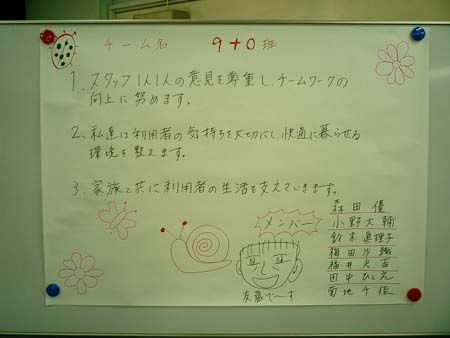 チーム名 9+0班
1、スタッフ1人1人の意見を尊重し、チームワークの
向上に努めます。
2、私達は利用者の気持ちを大切にし、快適に暮らせる
環境を整えます。
3、家族と共に利用者の生活を支えていきます。
メンバー
森田 優
小野大輔
鈴木眞理子
梅田沙織
福井光吉
田中ひとえ
菊地千佳
友蔵で〜す